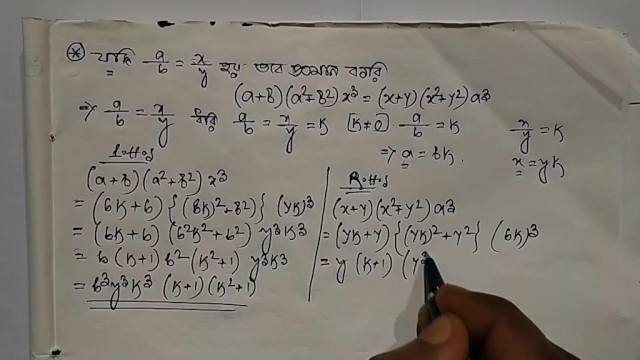 ⊛ যদি a/b = x/y হয় তবে প্রমাণ করি
(a+b)(a²+b²)x³ = (x+y)(x²+y²)a³
⇒ a/b = x/y ধরি a/b = x/y = K [K≠0] · a/b = K
⇒ a = bK.
x/y = K
x = yK
L.H.S
(a+b)(a²+b²)x³
= (bK+b){(bK)²+b²}(yK)³
= (bK+b)(b²K²+b²) y³K³
= b(K+1) b²(K²+1) y³K³
= b³y³K³ (K+1)(K²+1)
R.H.S
(x+y)(x²+y²)a³
= (yK+y){(yK)²+y²}(bK)³
= y(K+1)(y²